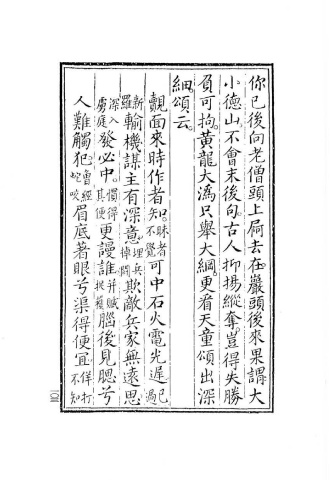 你已後向老僧頭上屙去在巖頭後來果謂大
小德山不會末後句古人抑揚縱奪豈得失勝
負可拘黃龍大溈只舉大綱更看天童頌出深
細頌云
覿面來時作者知昧者不覺可中石火電光遲已過
新羅輸機謀主有深意埋兵掉鬪欺敵兵家無遠思
深入虜庭發必中慣得其便更謾誰并贓捉獲腦後見腮兮
人難觸犯曾經蛇咬眉底著眼兮渠得便宜佯打不知